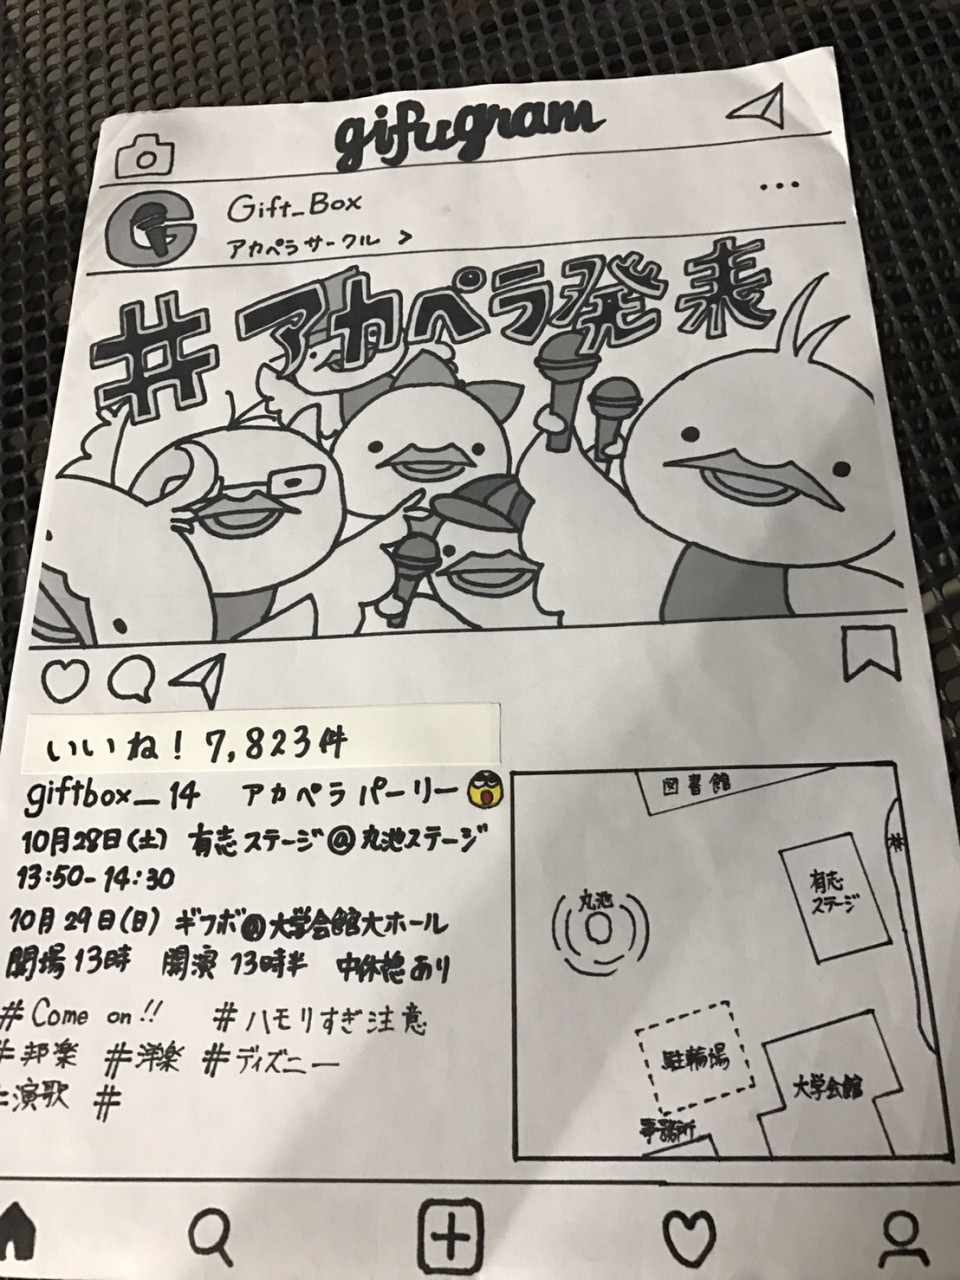 gifugram
Gift_Box
アカペラサークル >
#アカペラ発表
いいね! 7,823件
giftbox_14 アカペラパーリー
10月28日(土) 有志ステージ@丸池ステージ
13:50-14:30
10月29日(日) ギフボ@大学会館大ホール
開場13時 開演13時半 中休憩あり
#Come on!! #ハモりすぎ注意
#邦楽 #洋楽 #ディズニー
#演歌 #
図書館
林
有志
ステージ
丸池
駐輪場
大学会館
事務所